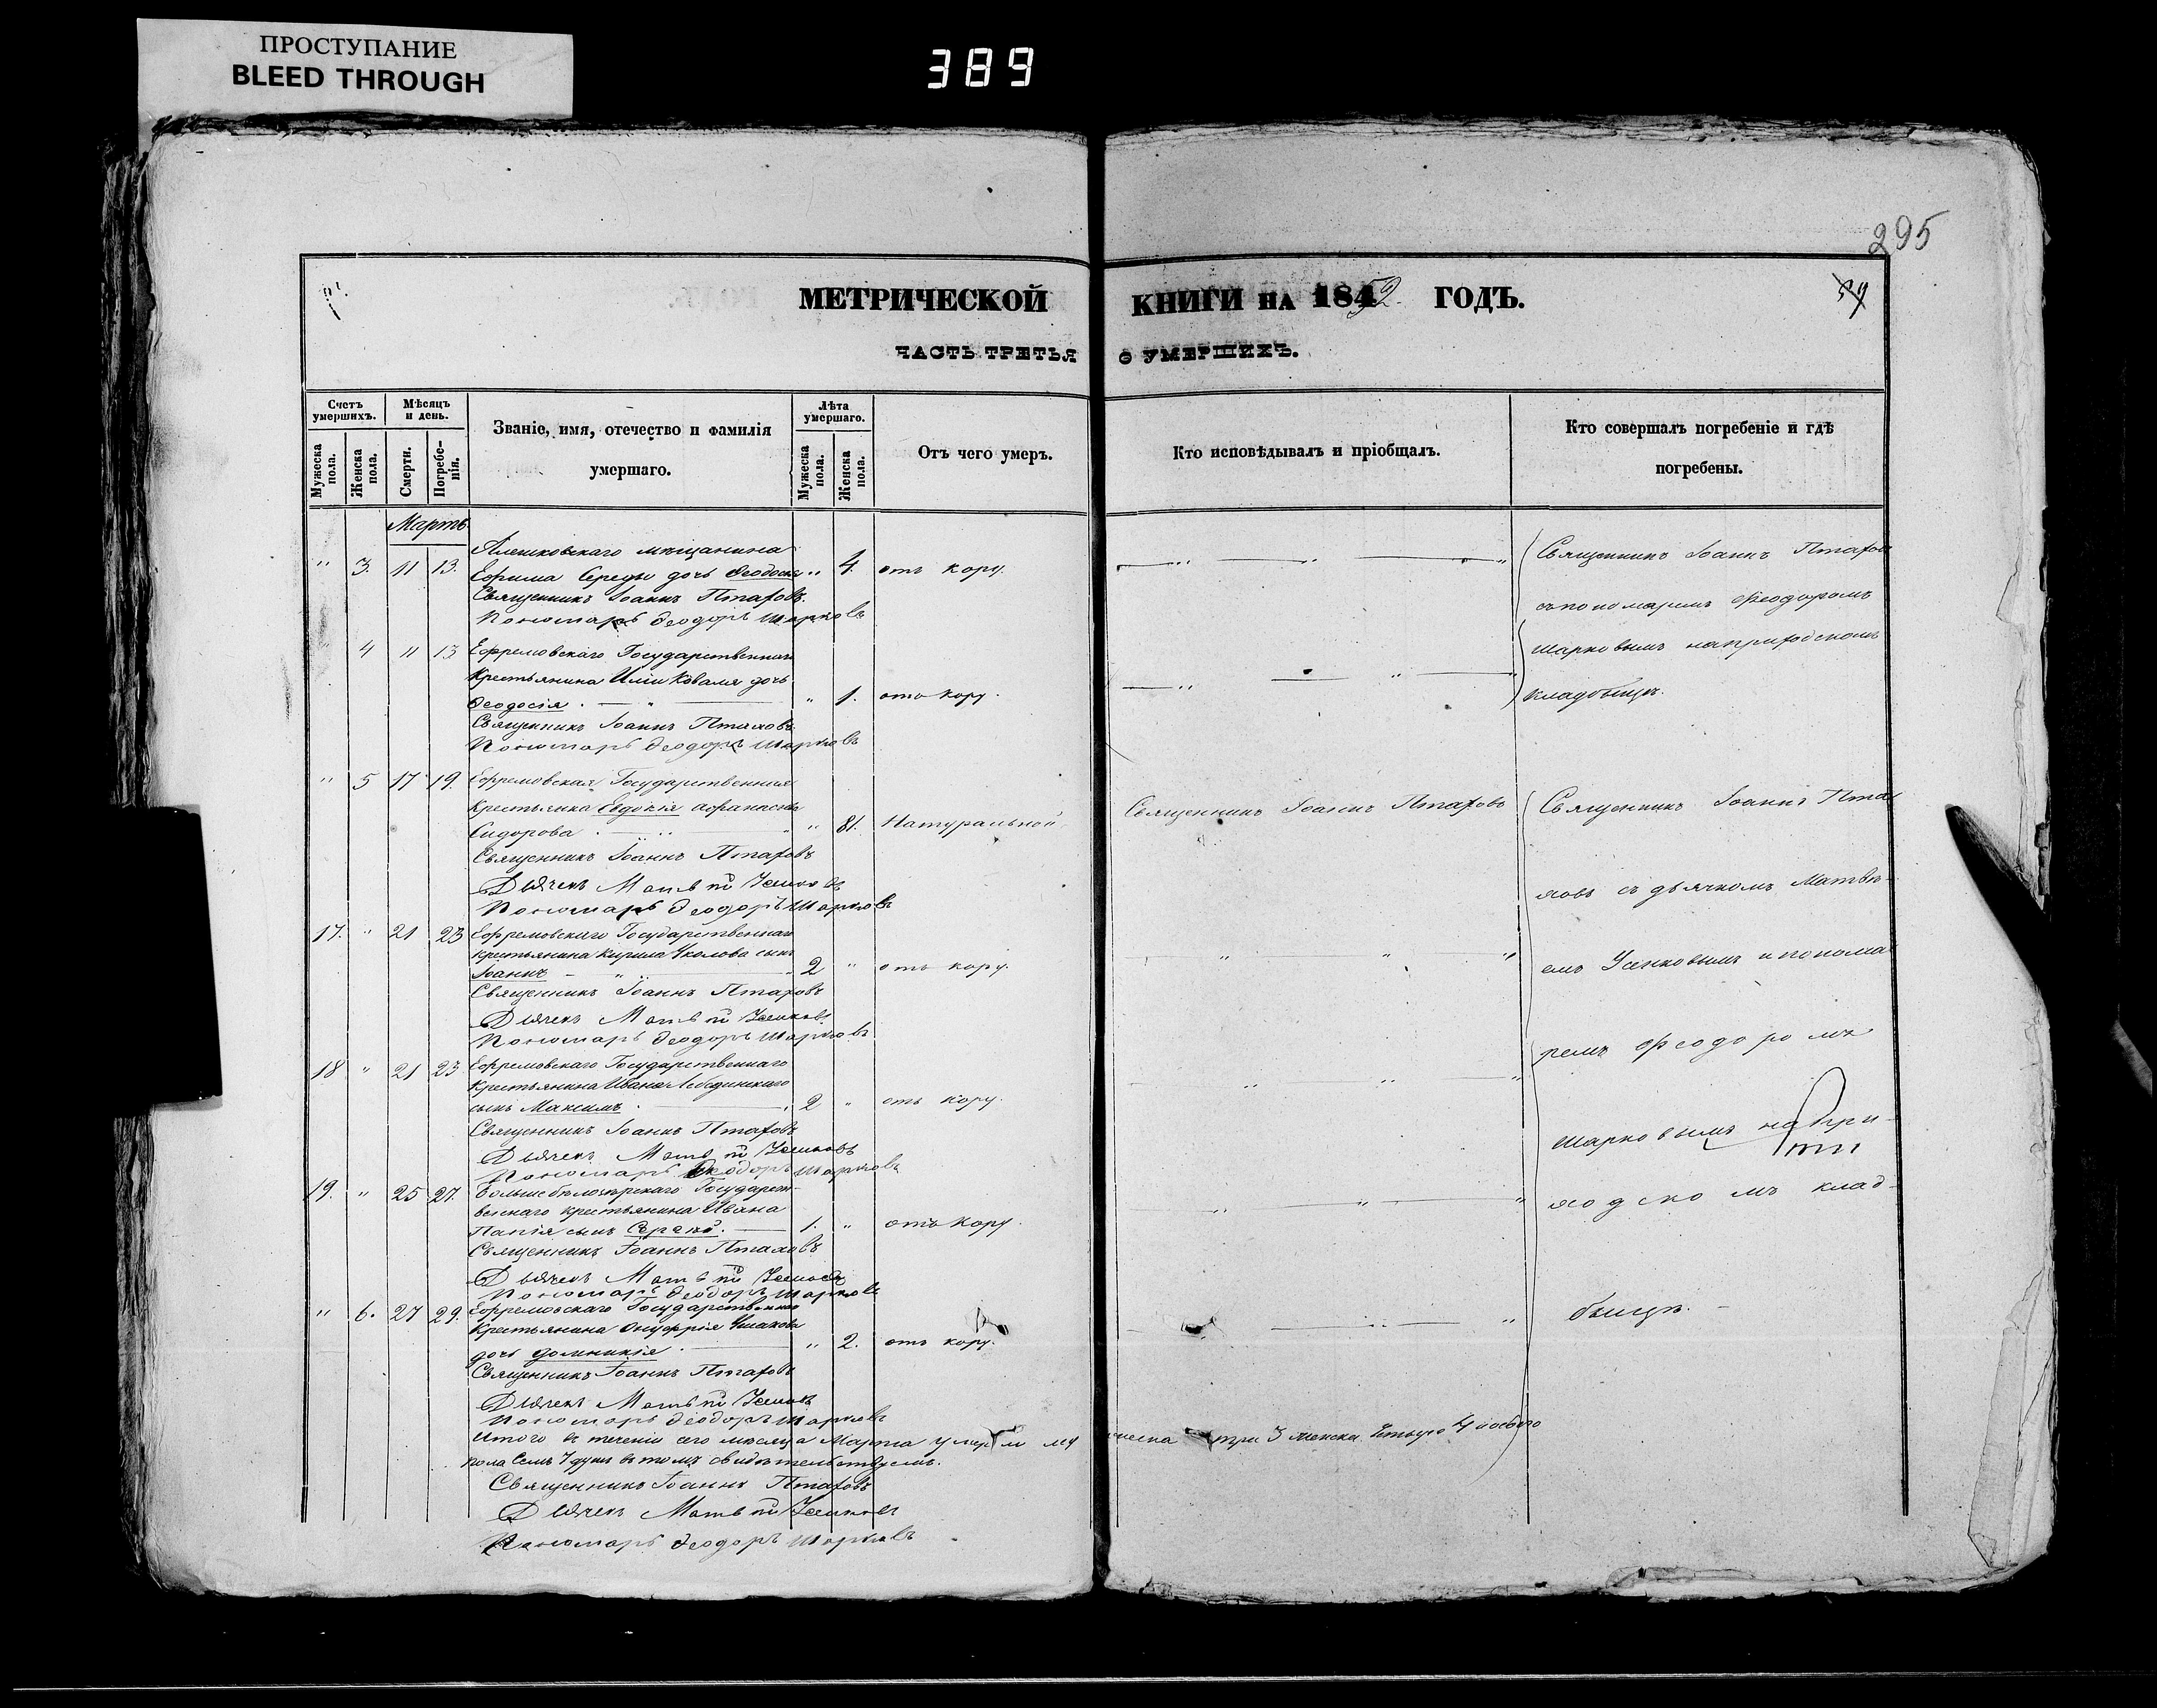 ПРОСТУПАНИЕ
BLEED THROUGH
389
295
МЕТРИЧЕСКОЙ КНИГИ НА 1852 ГОДЪ.
59
ЧАСТЬ ТРЕТЬЯ О УМЕРШИХЪ.
Счетъ умершихъ.
Мужеска пола.
Женска пола.
Мѣсяцъ и день.
Смерти.
Погребенія.
Званіе, имя, отечество и фамилія
умершаго.
Лѣта умершаго.
Мужеска пола.
Женска пола.
Отъ чего умеръ.
Кто исповѣдывалъ и пріобщалъ.
Кто совершалъ погребеніе и гдѣ
погребены.
Мартъ
Алешковскаго мѣщанина
" 3. 11 13. Ефима Середы дочь Ѳеодосія " 4. отъ кору.
Священникъ Іоаннъ Птаховъ.
Пономарь Ѳеодоръ Шарковъ
Священникъ Іоаннъ Птахов
съ пономаремъ Ѳеодоромъ
Шарковымъ на приходскомъ
кладбищѣ.
" 4 11 13 Ефремовскаго Государственнаго
крестьянина Иліи Коваля дочь
Ѳеодосія. " 1. отъ кору.
Священникъ Іоаннъ Птаховъ
Пономарь Ѳеодоръ Шарковъ
" 5 17 19. Ефремовская Государственная
крестьянка Евдокія Афанасіева
Сидорова " 81. Натуральной
Священникъ Іоаннъ Птаховъ
Священникъ Іоаннъ Птаховъ
Дьячекъ Матвѣй Усиковъ
Пономарь Ѳеодоръ Шарковъ
Священникъ Іоаннъ Пта
ховъ съ дьячкомъ Матвѣ-
емъ Усиковымъ и понома
ремъ Ѳеодоромъ
Шарковымъ на при-
ходскомъ клад-
бищѣ.
17. " 21 23 Ефремовскаго Государственнаго
крестьянина Кирила Чколова сынъ
Іоаннъ 2 " отъ кору.
Священникъ Іоаннъ Птаховъ
Дьячекъ Матвѣй Усиковъ
Пономарь Ѳеодоръ Шарковъ
18 " 21 23 Ефремовскаго Государственнаго
крестьянина Ивана Лебединскаго
сынъ Максимъ 2 " отъ кору.
Священникъ Іоаннъ Птаховъ
Дьячекъ Матвѣй Усиковъ
Пономарь Ѳеодоръ Шарковъ
19. " 25 27. Большебѣлозерскаго Государст-
веннаго крестьянина Ивана
Папія сынъ Сергѣй. 1. " отъ кору.
Священникъ Іоаннъ Птаховъ
Дьячекъ Матвѣй Усиковъ
Пономарь Ѳеодоръ Шарковъ
" 6. 27 29. Ефремовскаго Государственнаго
крестьянина Онуфрія Ушакова
дочь Домникія " 2. отъ кору.
Священникъ Іоаннъ Птаховъ
Дьячекъ Матвѣй Усиковъ
Пономарь Ѳеодоръ Шарковъ
Итого въ теченіи сего мѣсяца Марта умерли мужеска три 3 женска четыре 4 а обоего
пола Семь 7 душъ въ томъ свидѣтельствуемъ.
Священникъ Іоаннъ Птаховъ
Дьячекъ Матвѣй Усиковъ
Пономарь Ѳеодоръ Шарковъ